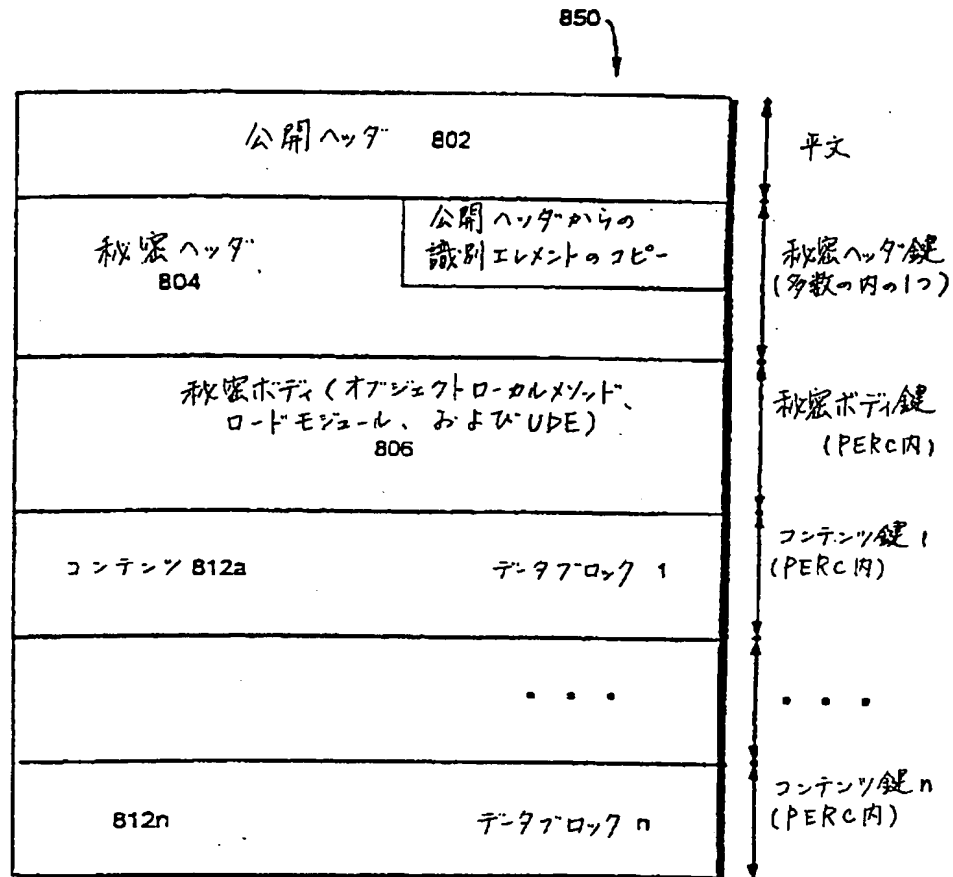 850
公開ヘッダ 802
平文
公開ヘッダからの
識別エレメントのコピー
秘密ヘッダ
804
秘密ヘッダ鍵
(多数の内の1つ)
秘密ボディ(オブジェクトローカルメソッド、
ロードモジュール、およびUDE)
806
秘密ボディ鍵
(PERC内)
コンテンツ 812a データブロック 1
コンテンツ鍵 1
(PERC内)
• • •
• • •
812n データブロック n
コンテンツ鍵 n
(PERC内)